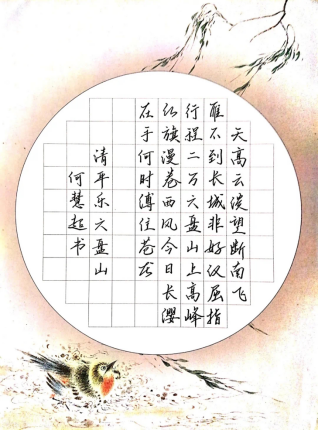 天高云淡望断南飞
雁不到长城非好汉屈指
行程二万六盘山上高峰
红旗漫卷西风今日长缨
在手何时缚住苍龙
清平乐六盘山
何慧超书